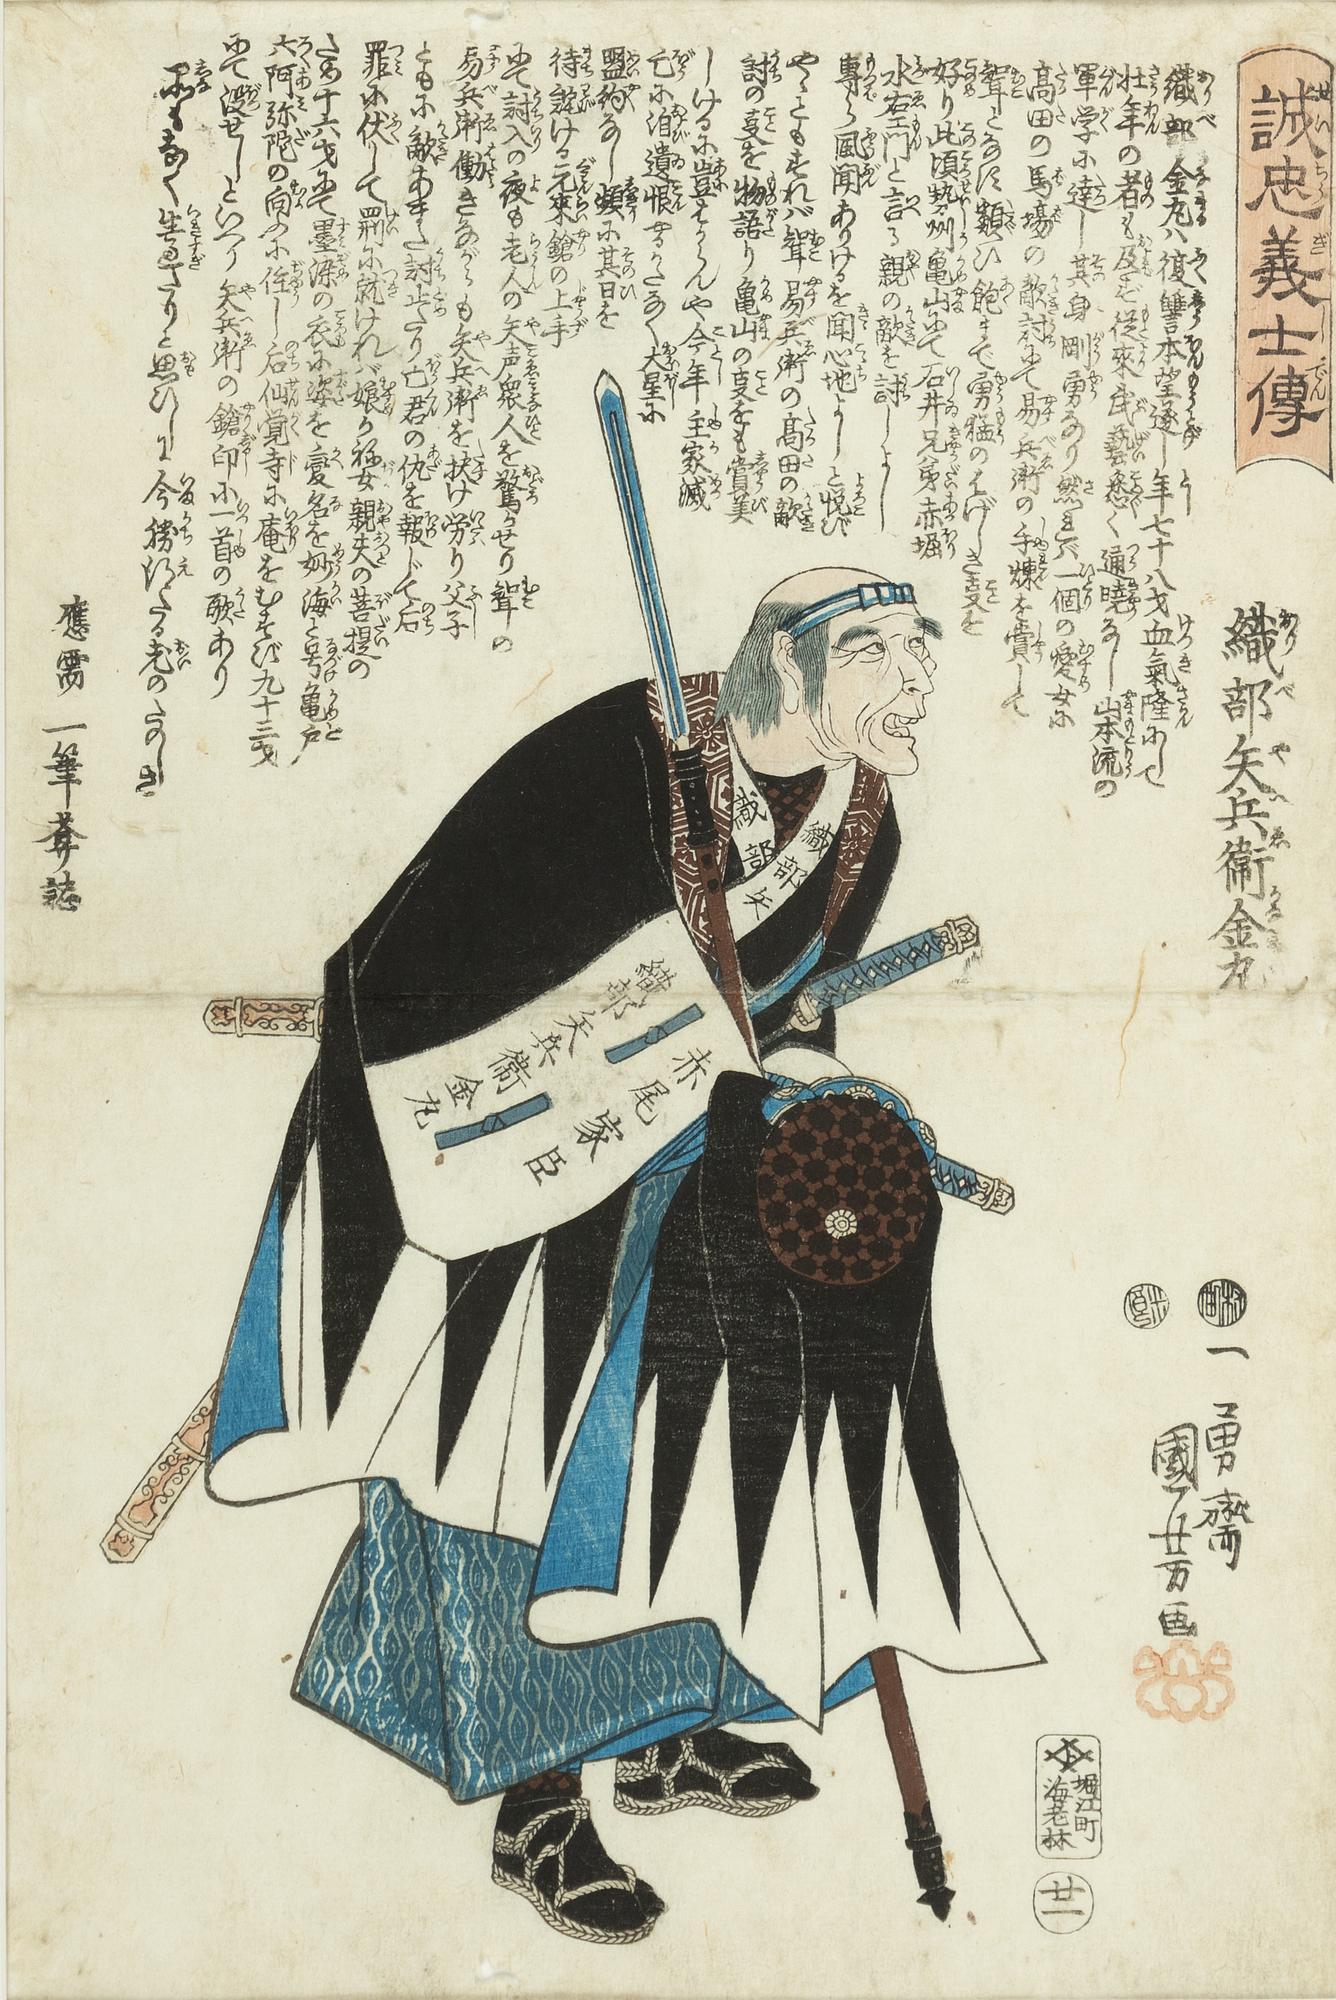 誠忠義士傳
せいちうぎしでん
織部矢兵衞金丸
織部金丸ハ復讐本望遂し年七十八才血氣隆にして
壮年の者も及ばず従来武藝悉く通暁なし山本流の
軍学に達し其身剛勇なり然るに一個の愛女に
髙田の馬場の敵討にて易兵衛の手煉を賞して
聟となす類ひ飽まで勇猛のはげしき支を
好り此頃勢州亀山にて石井兄弟赤堀
水右エ門と言る親の敵を討しよし
専ら風聞ありけるを聞心地よしと悦び
やゝともすれバ聟易兵衛の髙田の敵
討の支を物語り亀山の支をも賞美
しけるに豈はからんや今年主家滅
亡に泊遺恨やるかたなく大星に
盟約なし頻に其日を
待詫ける元来鎗の上手
にて討入の夜も老人の矢声衆人を驚かせり聟の
易兵衛働きながらも矢兵衛を扶け労り父子
ともに敵あまた討止たり亡君の仇を報じて后
罪に伏して刑に就けれバ娘の秘女親夫の菩提の
ため十六才にて墨染の衣に姿を変名を妙海と号亀戸
六阿弥陀の向ふに住し后仙覚寺に庵をむすび九十三才
にて没せしといへり矢兵衛の鎗印に一首の歌あり
死もなく生すぎたりと思ひしに今勝得たる老のたのしき
應需 一筆菴誌
織部
織部矢
赤尾家臣
織部矢兵衞金丸
一勇齋
國芳画
堀江町
海老林
廿一